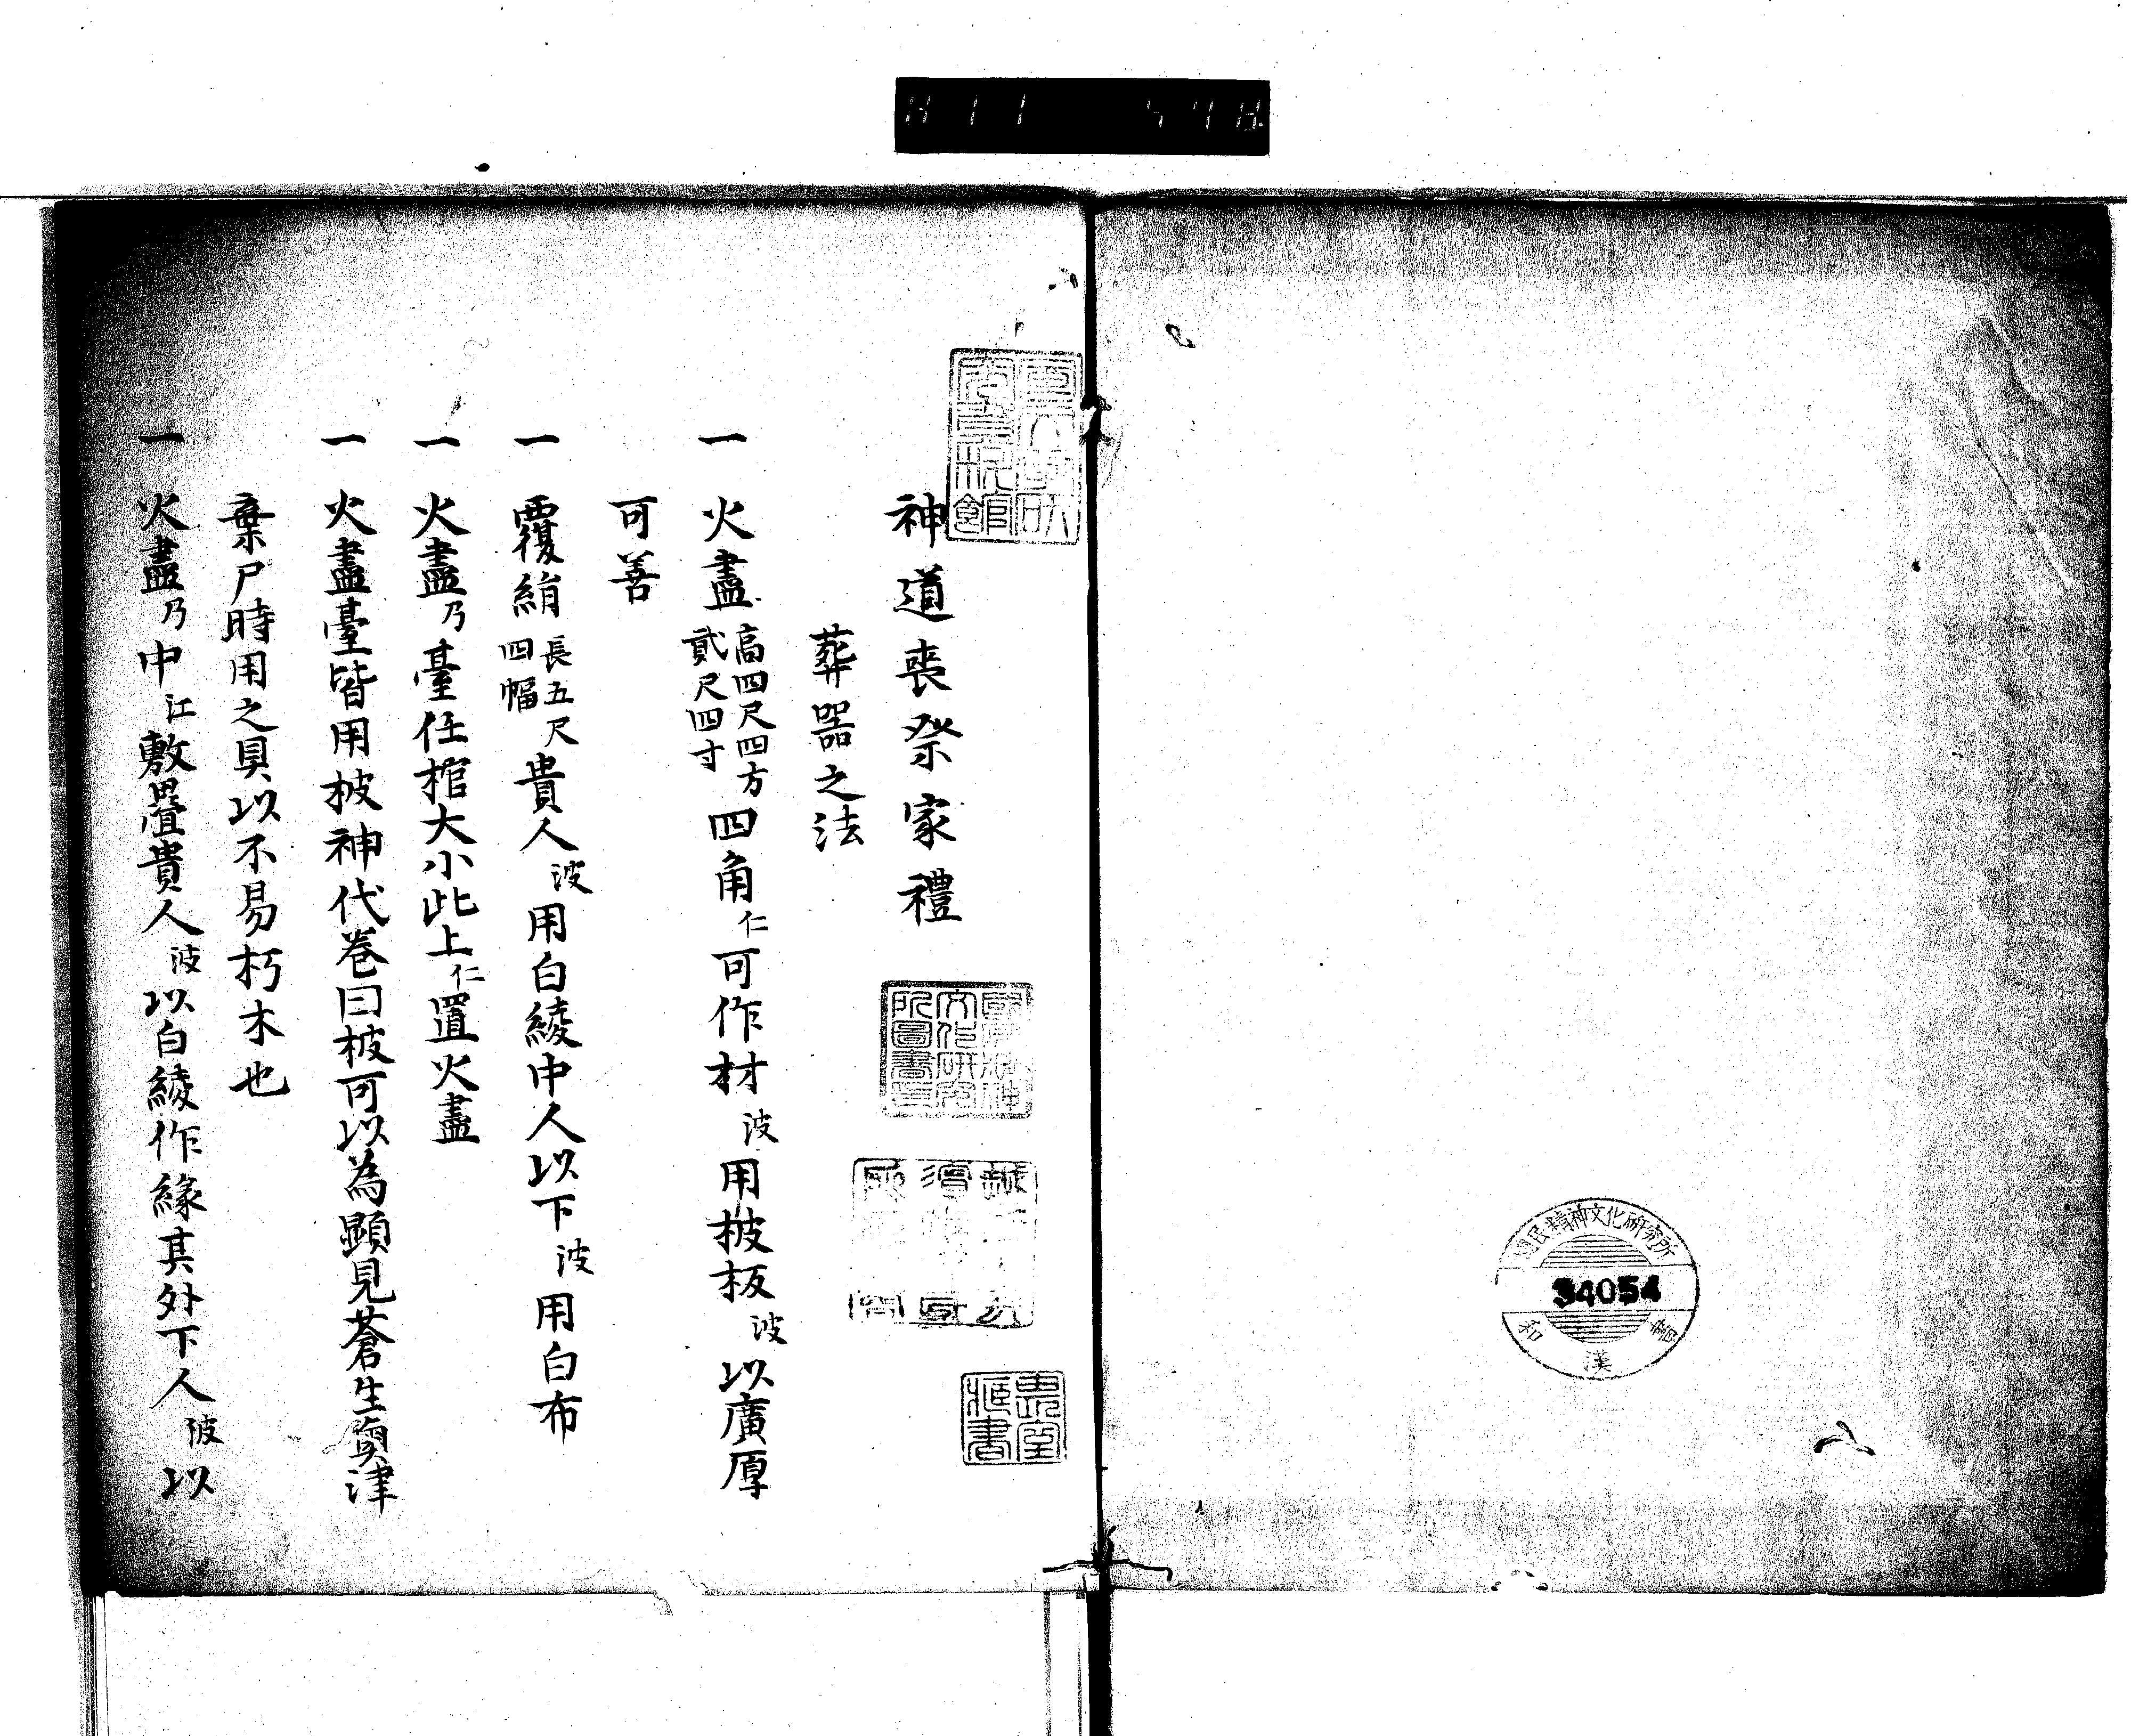 國民精神文化研究所
34054
和漢書
神道喪祭家禮
葬器之法
一 火盡 高四尺四方貳尺四寸 四角仁可作材波用披板波以廣厚
可善
一 覆絹 長五尺四幅 貴人波用白綾中人以下波用白布
一 火盡乃臺任棺大小此上仁置火盡
一 火盡臺皆用披神代巻曰披可以為顕見蒼生奥津
棄尸時用之具以不易朽木也
一 火盡乃中江敷疊貴人波以白綾作縁其外下人波以